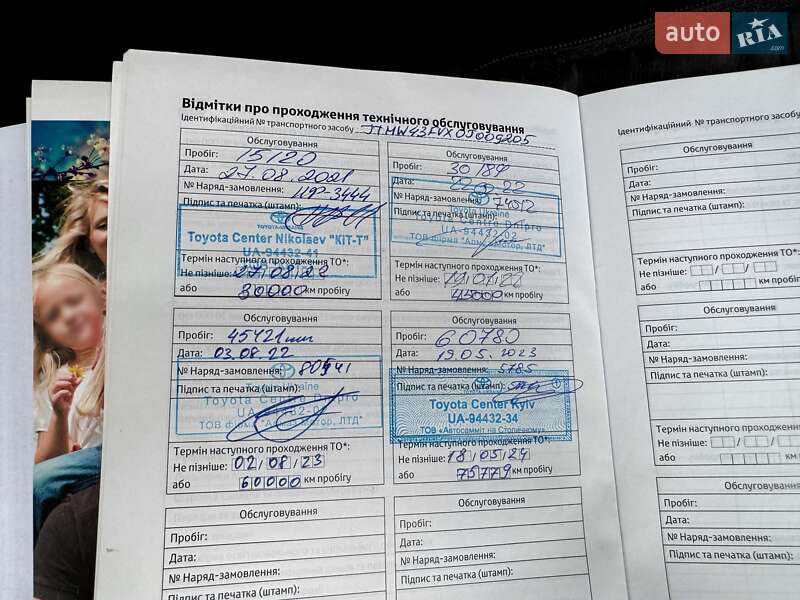 auto RIA .com
Відмітки про проходження технічного обслуговування
Ідентифікаційний № транспортного засобу JTMW43FVX0J009205
Обслуговування
Пробіг: 15120
Дата: 27.08.2021
№ Наряд-замовлення: 1192-3444
Підпис та печатка (штамп):
Toyota Center Nikolaev "KIT-T"
UA-94432-41
Термін наступного проходження ТО*:
Не пізніше: 27/08/22
або 30000 км пробігу
Обслуговування
Пробіг: 30184
Дата:
№ Наряд-замовлення: 74012
Підпис та печатка (штамп):
UA-94432-02
Термін наступного проходження ТО*:
Не пізніше:
або 45000 км пробігу
Обслуговування
Пробіг: 45421
Дата: 03.08.22
№ Наряд-замовлення: 80541
Підпис та печатка (штамп):
Toyota Centre Dnipro
Термін наступного проходження ТО*:
Не пізніше: 02/08/23
або 60000 км пробігу
Обслуговування
Пробіг: 60780
Дата: 19.05.2023
№ Наряд-замовлення: 5785
Підпис та печатка (штамп):
Toyota Center Kyiv
UA-94432-34
ТОВ «Автосамміт на Столичному»
Термін наступного проходження ТО*:
Не пізніше: 18/05/24
або 75779 км пробігу
Обслуговування
Пробіг:
Дата:
№ Наряд-замовлення:
Підпис та печатка (штамп):
Обслуговування
Пробіг:
Дата:
№ Наряд-замовлення:
Підпис та печатка (штамп):
Ідентифікаційний № транспортного засобу
Обслуговування
Пробіг:
Дата:
№ Наряд-замовлення:
Підпис та печатка (штамп):
Термін наступного проходження
Не пізніше:
або
Обслуговування
Пробіг:
Дата:
№ Наряд-замовлення:
Підпис та печатка (штамп):
Термін наступного проходження
Не пізніше:
або
Обслуговування
Пробіг:
Дата:
№ Наряд-замовлення:
Підпис та печатка (штамп):